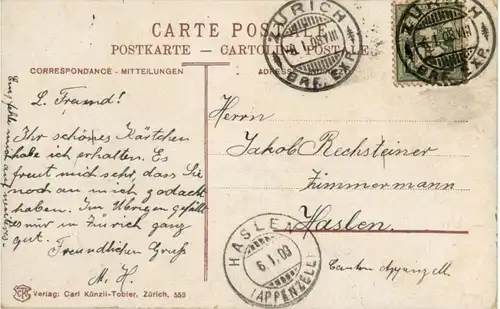 CARTE POSTALE
POSTKARTE - CARTOLINA POSTALE
CORRESPONDANCE - MITTEILUNGEN
ADRESSE
ZÜRICH
BRF. EXP.
ZÜRICH
BRF. EXP.
L. Freund!
Ihr schönes Kärtchen
habe ich erhalten. Es
freut mich sehr, dass Sie
noch an mich gedacht
haben. Im Übrigen gefällt
es mir in Zürich ganz
gut.
Freundlichen Gruss
M. H.
Empfehle mich auf weiteres.
Herrn
Jakob Rechsteiner
Zimmermann
Haslen.
Canton Appenzell
HASLEN
6.I.08
(APPENZELL)
Verlag: Carl Künzli-Tobler, Zürich. 553